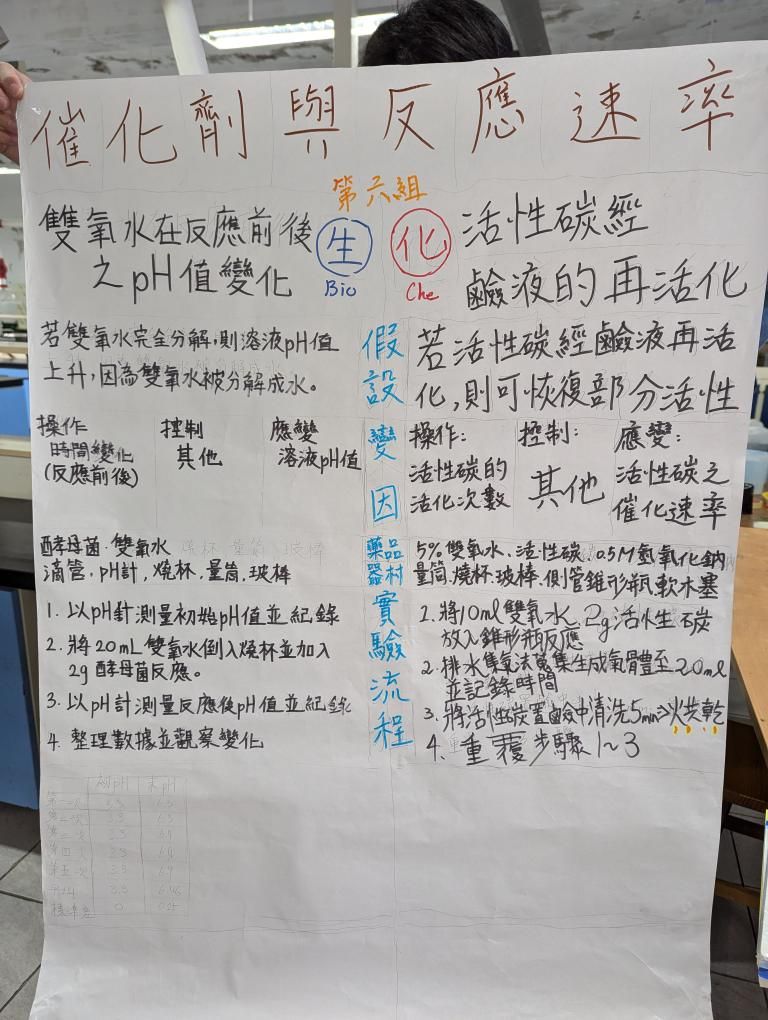 催化劑與反應速率
第六組
雙氧水在反應前後
之pH值變化
生
Bio
化
Che
活性碳經
鹼液的再活化
假設
若雙氧水完全分解,則溶液pH值
上升,因為雙氧水被分解成水。
若活性碳經鹼液再活
化,則可恢復部分活性
變因
操作
時間變化
(反應前後)
控制
其他
應變
溶液pH值
操作:
活性碳的
活化次數
控制:
其他
應變:
活性碳之
催化速率
藥品
器材
酵母菌、雙氧水
滴管,pH計,燒杯,量筒,玻棒
5%雙氧水、活性碳、0.5M氫氧化鈉
量筒,燒杯,玻棒,側管錐形瓶,軟木塞
實驗流程
1. 以pH計測量初始pH值並紀錄
2. 將20mL雙氧水倒入燒杯並加入
2g酵母菌反應。
3. 以pH計測量反應後pH值並紀錄
4. 整理數據並觀察變化
1. 將10ml雙氧水、2g活性碳
放入錐形瓶反應
2. 排水集氣法蒐集生成氧體至20ml
並記錄時間
3. 將活性碳置鹼中清洗5min⇒烘乾
4. 重覆步驟1~3
初pH 末pH
第一次
第二次
第三次
第四次
第五次